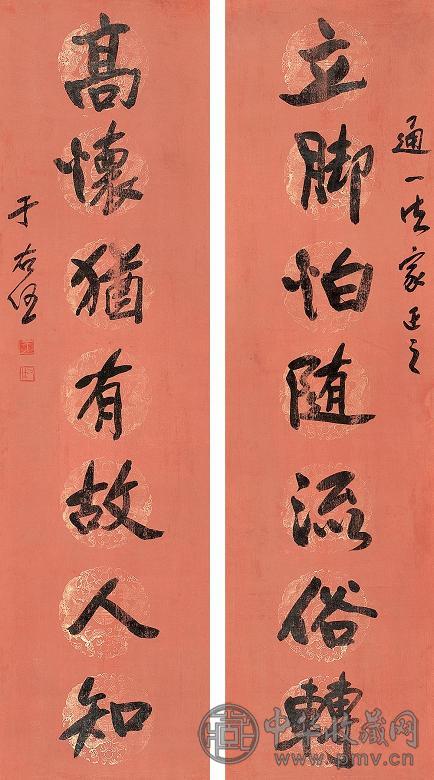 通一法家正之
立脚怕随流俗轉
高懷猶有故人知
于右任
中华收藏网
www.pmv.cn